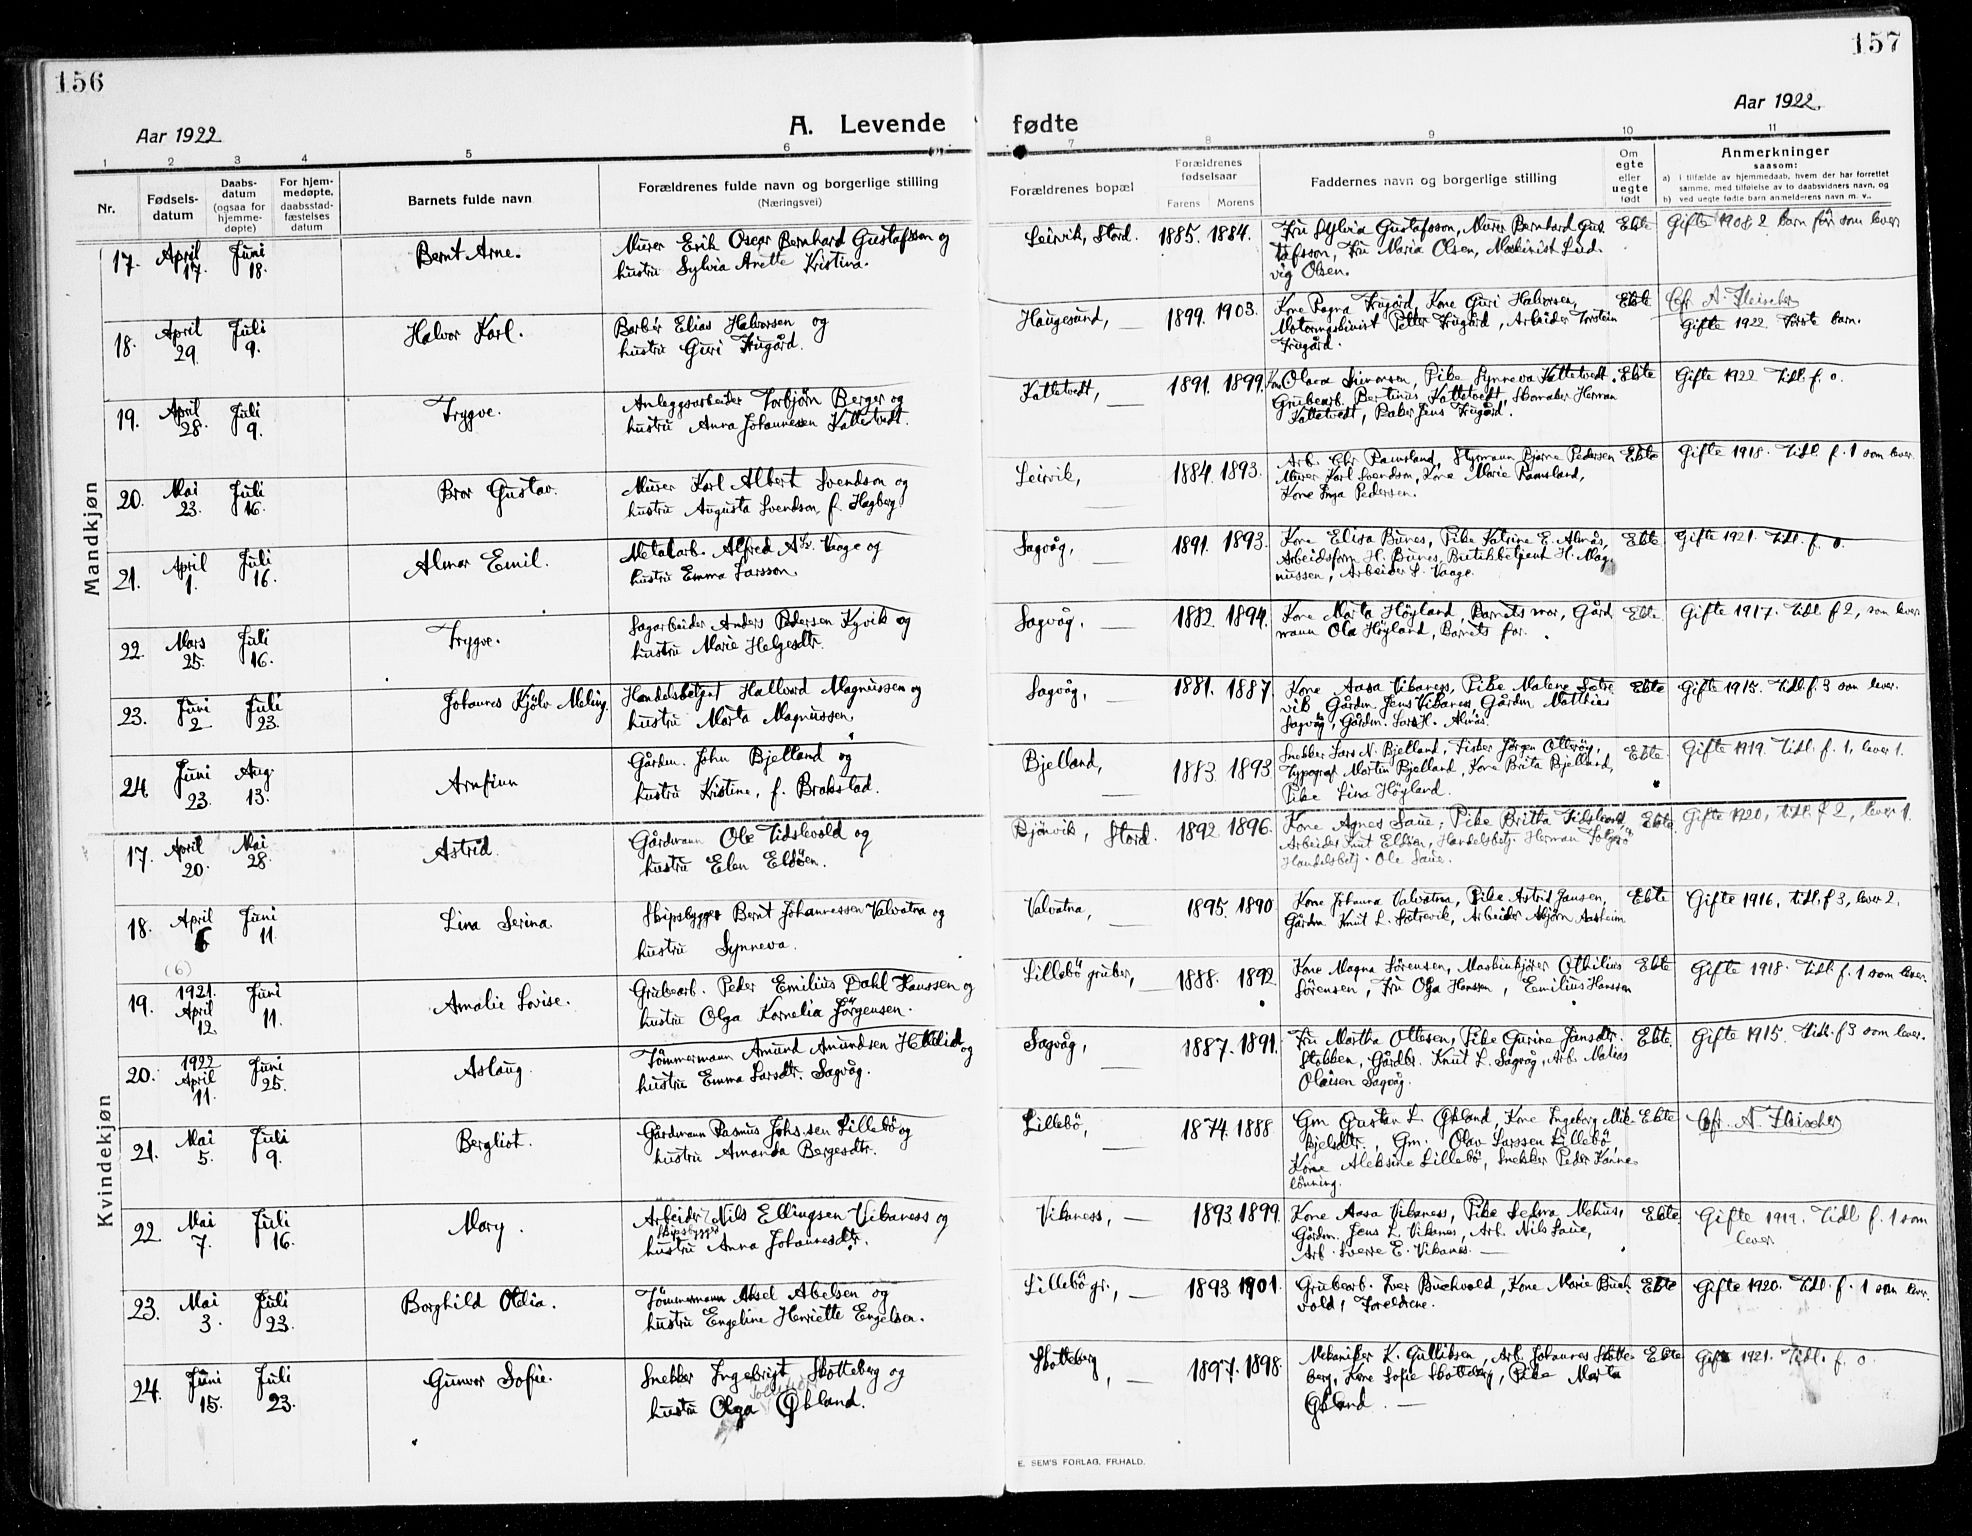 156
157
Aar 1922
A. Levende fødte
Aar 1922
1 2 3 4 5 6 7 8 9 10 11
Nr.
Fødsels-
datum
Daabs-
datum
(ogsaa for
hjemme-
døpte)
For hjem-
medøpte,
daabsstad-
fæstelses
datum
Barnets fulde navn
Forældrenes fulde navn og borgerlige stilling
(Næringsvei)
Forældrenes bopæl
Forældrenes
fødselsaar
Farens Morens
Faddernes navn og borgerlige stilling
Om
egte
eller
uegte
født
Anmerkninger
saasom:
a) i tilfælde av hjemmedaab, hvem der har forrettet
samme, med tilføielse av to daabsvidners navn, og
b) ved uegte fødte barn anmelderens navn m. v..
Mandkjøn
17. April 17. Juni 18. Bernt Arne.
Murer Erik Oscar Bernhard Gustafsson og
hustru Sylvia Anette Kristina.
Leirvik, Stord. 1885. 1884.
Fru Sylvia Gustafsson, Murer Bernhard Gus
tafsson, Fru Maria Olsen, Maskinist Lud
vig Olsen.
Ekte Gifte 1908 2 barn før som lever
18. April 29. Juli 9. Halvor Karl.
Barbér Elias Halvorsen og
hustru Guri Frugård.
Haugesund, 1899. 1903.
Kone Ragna Frugård, Kone Guri Halvorsen,
Petter Frugård, Arbeider Torstein
Frugård.
Ekte Cfr A. Fleischer
Gifte 1922 Første barn.
19. April 28. Juli 9. Trygve.
Anleggsarbeider Torbjørn Berger og
hustru Anna Johannesen Kattetvedt.
Kattetvedt, — 1891. 1899.
Kone Olava Simonsen, Pike Synneva Kattetvedt.
Grubearb. Bertinus Kattetvedt, Skomaker Herman
Kattetvedt, Baker Jens Frugård.
Ekte Gifte 1922 Tidl. f. 0.
20. Mai 23. Juli 16. Bror Gustav.
Murer Karl Albert Svendson og
hustru Augusta Svendson f. Hagberg
Leirvik, — 1884. 1893.
Arb. Chr Ramsland, Styrmann Bjarne Pedersen
Murer Karl Svendson, Kone Marie Ramsland,
Kone Inga Pedersen.
Ekte Gifte 1918. Tidl. f. 1 som lever.
21. April 1. Juli 16. Almar Emil.
Metalarb. Alfred A. Vaage og
hustru Emma Larsson.
Sagvåg, — 1891. 1893.
Kone Elisa Bunes, Pike Katrine E. Almås,
Arbeidsform H. Bunes, Butikkbetjent H. Mag
nussen, Arbeider L. Vaage.
Ekte Gifte 1921. Tidl. f. 0.
22. Mars 25. Juli 16. Trygve.
Sagarbeider Anders Pedersen Kyvik og
hustru Marie Helgesdtr.
Sagvåg. — 1882 1894.
Kone Marta Høyland, Barnets mor, Gård
mann Ola Høyland, Barnets far.
Ekte Gifte 1917. Tidl f 2, som lever
23. Juni 2 Juli 23. Johannes Kjølv Meling.
Handelsbetjent Hallvard Magnussen og
hustru Marta Magnussen,
Sagvåg, — 1881. 1887.
Kone Aasa Vikaness, Pike Malene Satre
vik Gårdm Jens Vikaness, Gårdm Matthias
Sagvåg, Gårdm. Lars H. Almås.
Ekte Gifte 1915. Tidl. f. 3 som lever.
24. Juni 23. Aug. 13. Arnfinn
Gårdm. John Bjelland og
hustru Kristine, f. Brakstad.
Bjelland, — 1883. 1893
Snekker Lars N. Bjelland, Fisker Jørgen Otterøy,
Typograf Martin Bjelland, Kone Brita Bjelland,
Pike Lina Høyland.
Ekte. Gifte 1919. Tidl. f. 1, lever 1.
Kvindekjøn
17. April 20. Mai 28. Astrid.
Gårdmann Ole Tidslevold og
hustru Elen Eldøen.
Bjønvik, Stord. 1892. 1896.
Kone Agnes Saue, Pike Britta Tidslevold,
Arbeider Knut Eldøen, Handelsbetj. Herman
Handelsbetj. Ole Saue.
Ekte. Gifte 1920, tidl. f 2, lever 1.
18. April 6 (6) Juni 11. Lina Serina.
Skipsbygger Bernt Johannessen Valvatna og
hustru Synneva.
Valvatna, — 1895. 1890
Kone Johanna Valvatna, Pike Astrid Jansen,
Gårdm Knut L. Sætrevik, Arbeider Asbjørn Aasheim
Ekte Gifte 1916, tidl. f 3, lever 2,
19. 1921. April 12. Juni 11. Amalie Lovise.
Grubearb. Peder Emilius Dahl Hanssen og
hustru Olga Kornelia Jørgensen.
Lillebø gruber, — 1888. 1892.
Kone Magna Sørensen, Maskinkjører Othilius
Sørensen, Fru Olga Hanssen, Emilius Hanssen
Ekte Gifte 1918. Tidl f. 1 som lever.
20. 1922 April 11. Juni 25. Aslaug.
Tømmermann Amund Amundsen Hetlid og
hustru Emma Larsdtr. Sagvåg.
Sagvåg, — 1887. 1891.
Fru Martha Ottesen, Pike Gurine Jansdtr.
Stokken, Gårdbr. Knut L. Sagvåg, Arb. Matias
Olaisen Sagvåg.
Ekte. Gifte 1915. Tidl. f 3 som lever.
21. Mai 5. Juli 9. Bergliot.
Gårdmann Rasmus Johs.sen Lillebø og
hustru Amanda Bergesdtr.
Lillebø, — 1874. 1888
Gm Gustav L. Økland, Kone Ingeborg Mik
kjelsdtr, Gm. Olav Larssen Lillebø,
Kone Aleksine Lillebø, Snekker Peder Kanne
lønning.
Ekte Cfr. A. Fleischer
22. Mai 7. Juli 16. Mary.
Arbeider Nils Ellingsen Vikaness og
Skipsbygger
hustru Anna Johannesdtr.
Vikaness, — 1893. 1899.
Kone Aasa Vikaness, Pike Selma Mehus,
Gårdm. Jens L. Vikanes, Arb. Nils Saue,
Arb. Sverre E. Vikanes. —
Ekte. Gifte 1919. Tidl f. 1 som
lever.
23. Mai 3. Juli 23. Borghild Otelia.
Tømmermann Aksel Abelsen og
hustru Engeline Henriette Engelsen.
Lillebø gr., — 1893. 1901.
Grubearb. Iver Buchvold, Kone Marie Buch
vold, Foreldrene.
Ekte Gifte 1920. Tidl. f. 1 som lever.
24. Juni 15. Juli 23. Gunvor Sofie.
Snekker Ingebrigt Skotteberg og
hustru Olga Økland.
Skotteberg, — 1897. 1898.
Mekaniker K. Gulliksen, Arb. Johannes Skotte
berg, Kone Sofie Skotteberg, Pike Marta
Økland. —
Ekte Gifte 1921. Tidl. f. 0.
E. SEM'S FORLAG, FR.HALD.